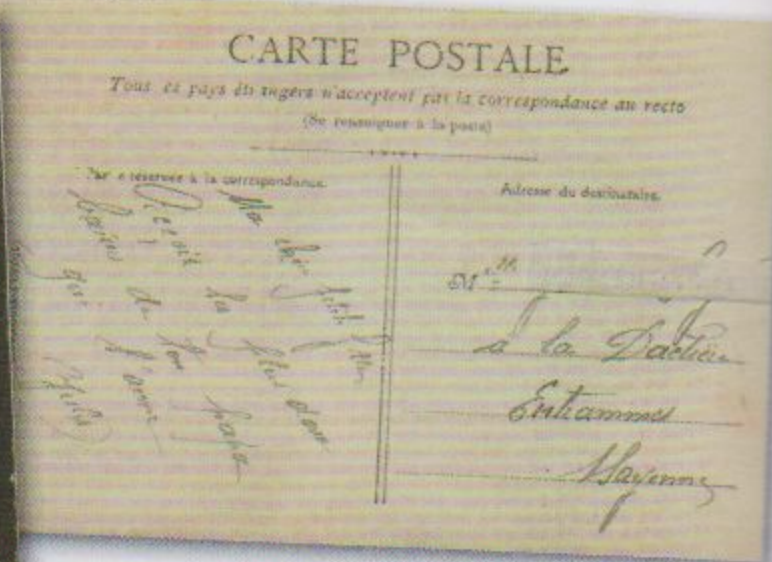 CARTE POSTALE
Tous les pays étrangers n'acceptent pas la correspondance au recto
(Se renseigner à la poste)
Partie réservée à la correspondance.
Ma chère petite fille
Reçoit les plus doux
baisers de ton papa
qui t'aime
Adresse du destinataire.
M
à la
Entrammes
Mayenne